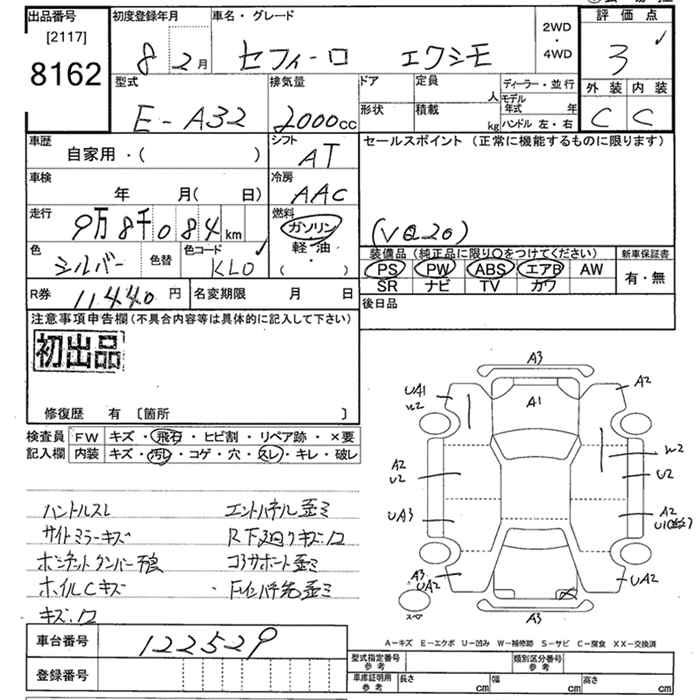 出品番号
[2117]
8162
初度登録年月
8 2月
車名・グレード
セフィーロ エクシモ
2WD
・
4WD
評価点
3
外装 内装
C C
型式
E-A32
排気量
2000cc
ドア
定員
人
形状
積載
kg
ディーラー・並行
モデル年式 年
ハンドル 左・右
車歴
自家用・( )
シフト
AT
セールスポイント (正常に機能するものに限ります)
(VQ20)
車検
年 月( 日)
冷房
AAC
走行
9万8千084km
燃料
ガソリン
軽・油
・
( )
色
シルバー
色替
色コード
KL0
装備品 (純正品に限り○をつけてください)
PS PW ABS エアB AW
SR ナビ TV カワ
新車保証書
有・無
R券
11,440円
名変期限 月 日
後日品
注意事項申告欄(不具合内容等は具体的に記入して下さい)
初出品
修復歴 有 [箇所 ]
検査員記入欄
FW キズ・飛石・ヒビ割・リペア跡・×要
内装 キズ・汚レ・コゲ・穴・スレ・キレ・破レ
ハンドルスレ
サイドミラーキズ
ホイルCキズ
キズ・凹
エンドパネル歪ミ
R下廻りキズ凹
コアサポート歪ミ
Fインパネ先歪ミ
A3
UA1
W2
A1
A2
A2
U2
W2
U2
UA3
A2
A3
UA2
UA2
スペア
A3
A-キズ E-エクボ U-凹み W-補修跡 S-サビ C-腐食 XX-交換済
車台番号
122529
登録番号
型式指定番号 参考
類別区分番号 参考
車庫証明用 参考
長さ cm
幅 cm
高さ cm